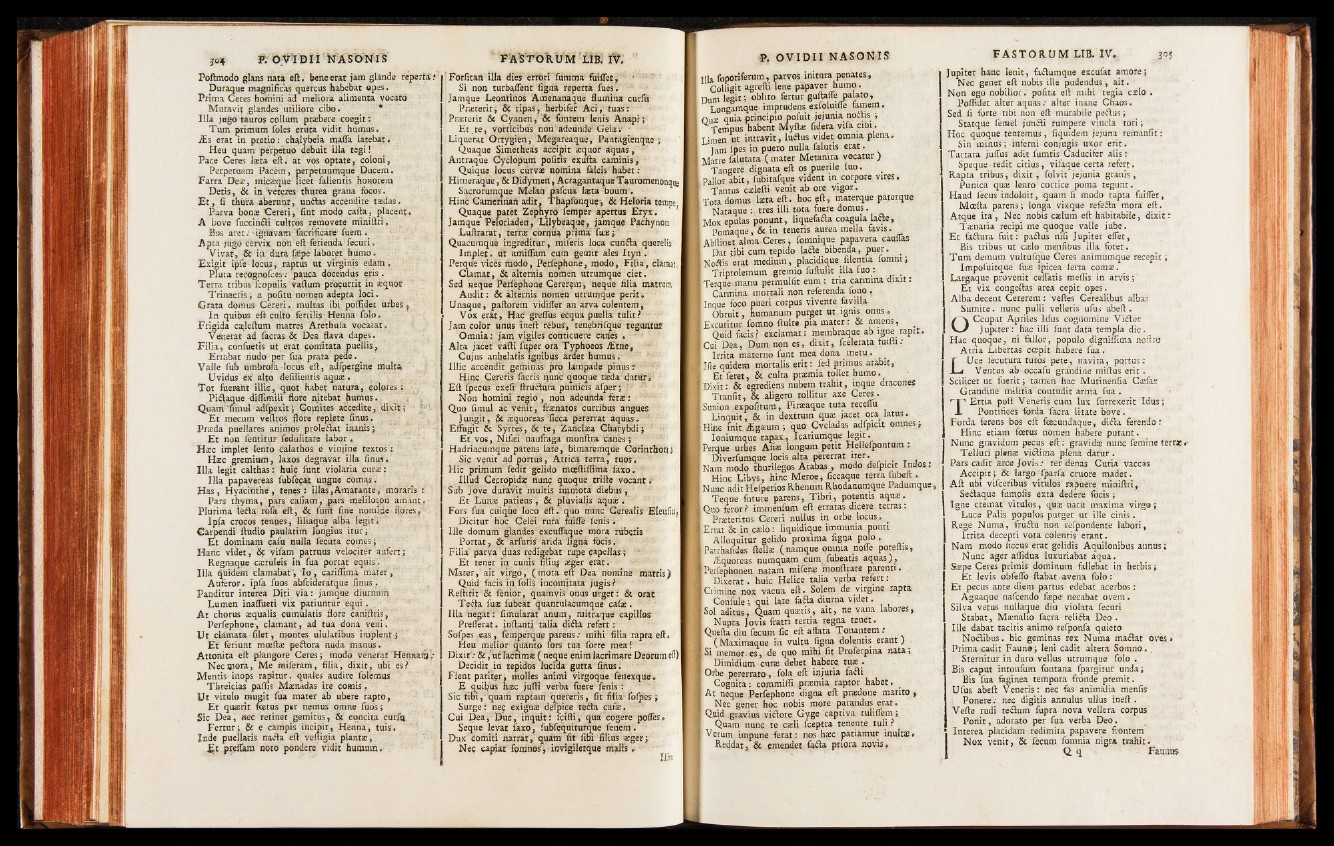 304 P. OVIDII NASONIS
Poſtmodo glans nata eſt. bene erat jam glande reperta:
Duraque magnificas quercus habebat opes.
Prima Ceres homini ad meliora alimenta vocato
Mutavit glandes utiliore cibo.
Illa jugo tauros collum præbere coegit:
Tum primum ſoles eruta vidit humus.
Æs erat in pretio: chalybeia maſſa latebat.
Heu quam perpetuo debuit illa tegi!
Pace Ceres læta eſt. at vos optate, coloni,
Perpetuam Pacem, perpetuumque Ducem.
Farra Deæ, micæque licet ſalientis honorem
Detis, & in veteres thurea grana focos.
Et, ſi thura aberunt, unctas accendite tædas.
Parva bonæ Cereri, ſint modo caſta, placent.
A bove ſuccincti cultros removete miniſtri.
Bos aret: ignavam ſacrificate ſuem.
Apta jugo cervix non eſt ferienda ſecuri.
Vivat, & in dura ſæpe laboret humo.
Exigit ipſe locus, raptus ut virginis edam.
Plura recognoſces: pauca docendus eris.
Terra tribus ſcopulis vaſtum procurrit in æquor
Trinacris; a poſitu nomen adepta loci.
Grata domus Cereri. multas ibi poſſidet urbes,
In quibus eſt culto fertilis Henna ſolo.
Frigida cæleſtum matres Arethuſa vocarat.
Venerat ad ſacras & Dea flava dapes.
Filia, conſuetis ut erat comitata puellis,
Errabat nudo per ſua prata pede.
Valle ſub umbroſa locus eſt, adſpergine multa
Uvidus ex alto deſilientis aquæ.
Tot fuerant illic, quot habet natura, colores:
Pictaque diſſimili flore nitebat humus.
Quam ſimul adſpexit; Comites accedite, dixit;
Et mecum veſtros flore replete ſinus.
Præda puellares animos prolectat inanis;
Et non ſentitur ſedulitate labor.
Hæc implet lento calathos e vimine textos:
Hæc gremium, laxos degravat illa ſinus.
Illa legit calthas: huic ſunt violaria curæ:
Illa papavereas ſubſecat ungue comas.
Has, Hyacinthe, tenes: illas, Amarante, moraris:
Pars thyma, pars caſiam, pars melilicon amant.
Plurima lecta roſa eſt, & ſunt ſine nomine flores.
Ipſa crocos tenues, liliaque alba legit.
Carpendi ſtudio paulatim longius itur;
Et dominam caſu nulla ſecuta comes.
Hanc videt, & viſam patruus velociter aufert;
Regnaque cæruleis in ſua portat equis.
Illa quidem clamabat, Io, cariſſima mater,
Auferor. ipſa ſuos abſcideratque ſinus.
Panditur interea Diti via: jamque diurnum
Lumen inaſſueti vix patiuntur equi.
At chorus æqualis cumulatis flore caniſtris,
Perſephone, clamant, ad tua dona veni.
Ut clamata ſilet, montes ululatibus implent;
Et feriunt mœſtæ pectora nuda manus.
Attonita eſt plangore Ceres; modo venerat Hennam:
Nec mora, Me miſeram, filia, dixit, ubi es?
Mentis inops rapitur. quales audire ſolemus
Threicias paſſis Mænadas ire comis.
Ut vitulo mugit ſua mater ab ubere rapto,
Et quærit fœtus per nemus omne ſuos;
Sic Dea, nec retinet gemitus, & concita curſu
Fertur; & e campis incipit, Henna, tuis.
Inde puellaris nacta eſt veſtigia plantæ,
Et preſſam noto pondere vidit humum.
FASTORUM LIB. IV.
Forſitan illa dies errori ſumma fuiſſet,
Si non turbaſſent ſigna reperta ſues.
Jamque Leontinos Amenanaque flumina curſu
Præterit, & ripas, herbifer Aci, tuas:
Præterit & Cyanen, & fontem lenis Anapi;
Et te, vorticibus non adeunde Gela.
Liquerat Ortygien, Megareaque, Pantagienque;
Quaque Simethæas accipit æquor aquas,
Antraque Cyclopum poſitis exuſta caminis,
Quique locus curvæ nomina falcis habet:
Himeraque, & Didymen, Acragantaque Tauromenonque
Sacrorumque Melan paſcua læta boum.
Hinc Camerinan adit, Thapſonque, & Heloria tempe,
Quaque patet Zephyro ſemper apertus Eryx.
Jamque Peloriaden, Lilybæaque, jamque Pachynon
Luſtrarat, terræ cornua prima ſuæ;
Quacumque ingreditur, miſeris loca cuncta querelis
Implet. ut amiſſum cum gemit ales Ityn.
Perque vices modo, Perſephone, modo, Filia, clamat,
Clamat, & alternis nomen utrumque ciet.
Sed neque Perſephone Cererem, neque filia matrem
Audit: & alternis nomen utrumque perit.
Unaque, paſtorem vidiſſet an arva colentem,
Vox erat, Hac greſſus ecqua puella tulit?
Jam color unus ineſt rebus, tenebriſque teguntur
Omnia: jam vigiles conticuere canes.
Alta jacet vaſti ſuper ora Typhoeos Ætne,
Cujus anhelatis ignibus ardet humus.
Illic accendit geminas pro lampade pinus:
Hinc Cereris ſacris nunc quoque tæda datur.
Eſt ſpecus exeſi ſtructura pumicis aſper;
Non homini regio, non adeunda feræ:
Quo ſimul ac venit, frænatos curribus angues
Jungit, & æquoreas ſicca pererrat aquas.
Effugit & Syrtes, & te, Zanclæa Charybdi;
Et vos, Niſei naufraga monſtra canes;
Hadriacumque patens late, bimaremque Corinthon;
Sic venit ad portus, Attica terra, tuos.
Hic primum ſedit gelido mœſtiſſima ſaxo.
Illud Cecropidæ nunc quoque triſte vocant.
Sub Jove duravit multis immota diebus,
Et Lunæ patiens, & pluvialis aquæ.
Fors ſua cuique loco eſt. quo nunc Cerealis Eleuſin,
Dicitur hoc Celei rura fuiſſe ſenis.
Ille domum glandes excuſſaque mora rubetis
Portat, & arſuris arida ligna focis.
Filia parva duas redigebat rupe capellas;
Et tener in cunis filius æger erat.
Mater, ait virgo, (mota eſt Dea nomine matris)
Quid facis in ſolis incomitata jugis?
Reſtitit & ſenior, quamvis onus urget: & orat
Tecta ſuæ ſubeat quantulacumque caſæ.
Illa negat: ſimularat anum, mitraque capillos
Preſſerat. inſtanti talia dicta refert:
Soſpes eas, ſemperque parens: mihi filia rapta eſt.
Heu melior quanto ſors tua ſorte mea!
Dixit: &, ut lacrimæ (neque enim lacrimare Deorum eſt)
Decidit in tepidos lucida gutta ſinus.
Flent pariter, molles animi virgoque ſenexque.
E quibus hæc juſti verba fuere ſenis:
Sic tibi, quam raptam quereris, ſit filia ſoſpes;
Surge: nec exiguæ deſpice tecta caſæ.
Cui Dea, Duc, inquit: ſciſti, qua cogere poſſes.
Seque levat ſaxo, ſubſequiturque ſenem.
Dux comiti narrat, quam ſit ſibi filius æger;
Nec capiat ſomnos, invigiletque malis.
Illa
P. OVIDII NASONIS
Illa ſoporiferum, parvos initura penates,
Colligit agreſti lene papaver humo.
Dum legit; oblito fertur guſtaſſe palato,
Longamque imprudens exſoluiſſe famem.
Quæ quia principio poſuit jejunia noctis;
Tempus habent Myſtæ ſidera viſa cibi.
Limen ut intravit, luctus videt omnia plena.
Jam ſpes in puero nulla ſalutis erat.
Matre ſalutata (mater Metanira vocatur)
Tangere dignata eſt os puerile ſuo.
Pallor abit, ſubitaſque vident in corpore vires.
Tantus cæleſti venit ab ore vigor.
Tota domus læta eſt. hoc eſt, materque paterque
Nataque: tres illi tota fuere domus.
Mox epulas ponunt, liquefacta coagula lacte,
Pomaque, & in teneris aurea mella favis.
Abſtinet alma Ceres, ſomnique papavera cauſſas
Dat tibi cum tepido lacte bibenda, puer.
Noctis erat medium, placidique ſilentia ſomni;
Triptolemum gremio ſuſtulit illa ſuo:
Terque manu permulſit eum: tria carmina dixit:
Carmina mortali non referenda ſono.
Inque foco pueri corpus vivente favilla
Obruit, humanum purget ut ignis onus.
Excutitur ſomno ſtulte pia mater: & amens,
Quid facis? exclamat: membraque ab igne rapit.
Cui Dea, Dum non es, dixit, ſcelerata fuiſti:
Irrita materno ſunt mea dona metu.
Iſte quidem mortalis erit: ſed primus arabit,
Et ſeret, & culta præmia tollet humo.
Dixit: & egrediens nubem trahit, inque dracones
Tranſit, & aligero tollitur axe Ceres.
Sunion expoſitum, Piræaque tuta receſſu
Linquit, & in dextrum quæ jacet ora latus.
Hinc ſinit Ægæum, quo Cycladas adſpicit omnes;
Ioniumque rapax, Icariumque legit.
Perque urbes Aſiæ longum petit Helleſpontum:
Diverſumque locis alta pererrat iter.
Nam modo thurilegos Arabas, modo deſpicit Indos:
Hinc Libys, hinc Meroe, ſiccaque terra ſubeſt.
Nunc adit Heſperios Rhenum Rhodanumque Padumque,
Teque future parens, Tibri, potentis aquæ.
Quo feror? immenſum eſt erratas dicere terras:
Præteritus Cereri nullus in orbe locus.
Errat & in cælo: liquidique immunia ponti
Alloquitur gelido proxima ſigna polo.
Parrhaſides ſtellæ (namque omnia noſſe poteſtis,
Æquoreas numquam cum ſubeatis aquas),
Perſephonen natam miſeræ monſtrate parenti.
Dixerat. huic Helice talia verba refert:
Crimine nox vacua eſt. Solem de virgine rapta
Conſule; qui late facta diurna videt.
Sol aditus, Quam quæris, ait, ne vana labores,
Nupta Jovis fratri tertia regna tenet.
Queſta diu ſecum ſic eſt affata Tonantem:
(Maximaque in vultu ſigna dolentis erant)
Si memor es, de quo mihi ſit Proſerpina nata;
Dimidium curæ debet habere tuæ.
Orbe pererrato, ſola eſt injuria facti
Cognita: commiſſi præmia raptor habet.
At neque Perſephone digna eſt prædone marito,
Nec gener hoc nobis more parandus erat.
Quid gravius victore Gyge captiva tuliſſem;
Quam nunc te cæli ſceptra tenente tuli?
Verum impune ferat: nos hæc patiamur inultæ.
Reddat, & emendet facta priora novis.
FASTORUM LIB. IV. 305
Jupiter hanc lenit, factumque excuſat amore;
Nec gener eſt nobis ille pudendus, ait.
Non ego nobilior. poſita eſt mihi regia cælo.
Poſſidet alter aquas: alter inane Chaos.
Sed ſi forte tibi non eſt mutabile pectus;
Statque ſemel juncti rumpere vincla tori;
Hoc quoque tentemus, ſiquidem jejuna remanſit:
Sin minus; inferni conjugis uxor erit.
Tartara juſſus adit ſumtis Caducifer alis:
Speque redit citius, viſaque certa refert.
Rapta tribus, dixit, ſolvit jejunia granis,
Punica quæ lento cortice poma tegunt.
Haud ſecus indoluit, quam ſi modo rapta fuiſſet,
Mœſta parens; longa vixque refecta mora eſt.
Atque ita, Nec nobis cælum eſt habitabile, dixit:
Tænaria recipi me quoque valle jube.
Et factura fuit: pactus niſi Jupiter eſſet,
Bis tribus ut cælo menſibus illa foret.
Tum demum vultuſque Ceres animumque recepit;
Impoſuitque ſuæ ſpicea ſerta comæ.
Largaque provenit ceſſatis meſſis in arvis;
Et vix congeſtas area cepit opes.
Alba decent Cererem: veſtes Cerealibus albas
Sumite. nunc pulli velleris uſus abeſt.
OCcupat Apriles Idus cognomine Victor
Jupiter: hac illi ſunt data templa die.
Hac quoque, ni fallor, populo digniſſima noſtro
Atria Libertas cœpit habere ſua.
LUce ſecutura tutos pete, navita, portus:
Ventus ab occaſu grandine miſtus erit.
Scilicet ut fuerit; tamen hac Mutinenſia Cæſar
Grandine militia contudit arma ſua.
TErtia poſt Veneris cum lux ſurrexerit Idus;
Pontifices forda ſacra litate bove.
Forda ferens bos eſt fœcundaque, dicta ferendo:
Hinc etiam fœtus nomen habere putant.
Nunc gravidum pecus eſt: gravidæ nunc ſemine terræ.
Telluri plenæ victima plena datur.
Pars cadit arce Jovis: ter denas Curia vaccas
Accipit; & largo ſparſa cruore madet.
Aſt ubi viſceribus vitulos rapuere miniſtri,
Sectaque fumoſis exta dedere focis;
Igne cremat vitulos, quæ natu maxima virgo;
Luce Palis populos purget ut ille cinis.
Rege Numa, fructu non reſpondente labori,
Irrita decepti vota colentis erant.
Nam modo ſiccus erat gelidis Aquilonibus annus;
Nunc ager aſſidua luxuriabat aqua.
Sæpe Ceres primis dominum fallebat in herbis;
Et levis obſeſſo ſtabat avena ſolo:
Et pecus ante diem partus edebat acerbos:
Agnaque naſcendo ſæpe necabat ovem.
Silva vetus nullaque diu violata ſecuri
Stabat, Mænalio ſacra relicta Deo.
Ille dabat tacitis animo reſponſa quieto
Noctibus. hic geminas rex Numa mactat oves.
Prima cadit Fauno; leni cadit altera Somno.
Sternitur in duro vellus utrumque ſolo.
Bis caput intonſum fontana ſpargitur unda;
Bis ſua faginea tempora fronde premit.
Uſus abeſt Veneris: nec fas animalia menſis
Ponere: nec digitis annulus ullus ineſt.
Veſte rudi tectum ſupra nova vellera corpus
Ponit, adorato per ſua verba Deo.
Interea placidam redimita papavere frontem
Nox venit, & ſecum ſomnia nigra trahit.
Q q Faunus